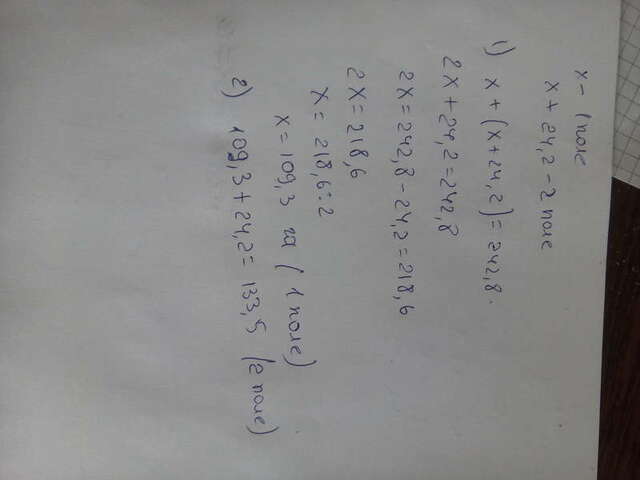 x - 1 поле
x + 24,2 - 2 поле
1) x + (x+24,2) = 242,8.
2x + 24,2 = 242,8
2x = 242,8 - 24,2 = 218,6
2x = 218,6
x = 218,6:2
x = 109,3 га (1 поле)
2) 109,3 + 24,2 = 133,5 (2 поле)